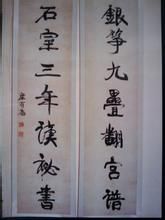 銀箏九疊翻宮譜
石室三年讀祕書